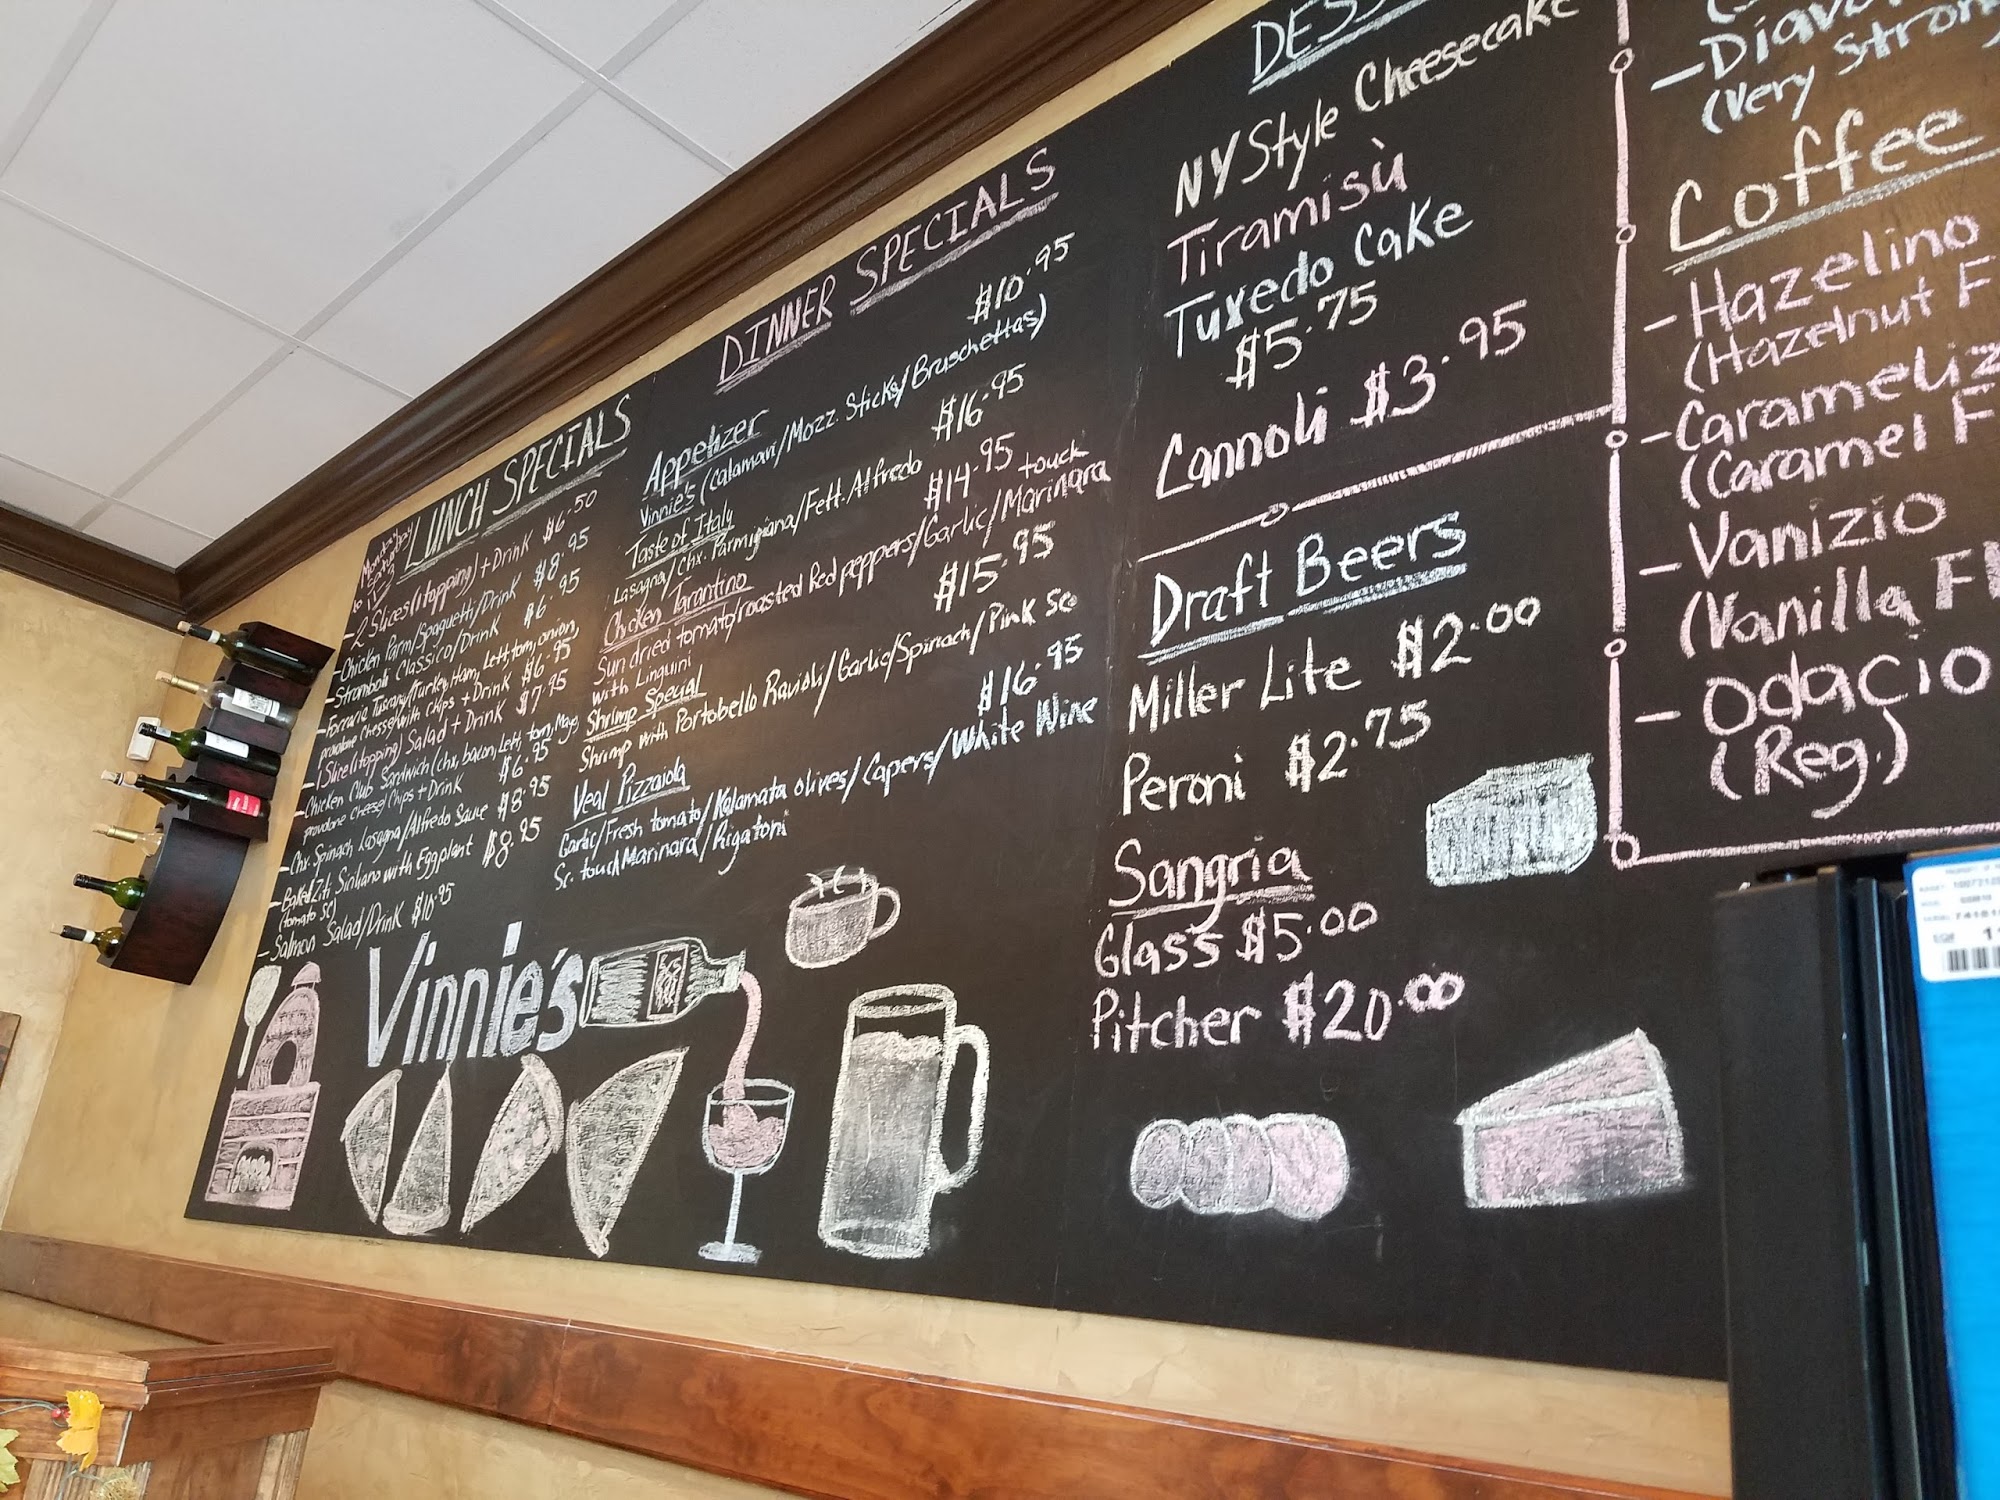 LUNCH SPECIALS
- 2 Slices (1 topping) + Drink $6.50
- Chicken Parm/Spaguetti/Drink $8.95
- Stromboli Classico/Drink $6.95
- Focaccia Tuscany/Turkey, Ham, Lett, tom, onion,
provolone Chesse with chips + Drink $6.95
- 1 Slice (1 topping) Salad + Drink $7.95
- Chicken Club Sandwich (chx, bacon, Lett, tom, Mayo
provolone cheese/Chips + Drink $6.95
- Chx. Spinach Lasagna/Alfredo Sauce $8.95
- Baked Ziti Siciliano with Eggplant $8.95
(tomato Sc)
- Salmon Salad/Drink $10.95
DINNER SPECIALS
Appetizer $10.95
Vinnie's (Calamari/Mozz. Sticks/Bruschettas)
Taste of Italy $16.95
Lasagna/Chx. Parmigiana/Fett. Alfredo
Chicken Tarantino $14.95
Sun dried tomato/roasted Red peppers/Garlic/Marinara touch
with Linguini
Shrimp Special $15.95
Shrimp with Portobello Ravioli/Garlic/Spinach/Pink Sc
Veal Pizzaiola $16.95
Garlic/Fresh tomato/Kalamata olives/Capers/White Wine
Sc. touch Marinara/Rigatoni
Vinnie's
DESS
NY Style Cheesecake
Tiramisù
Tuxedo Cake
$5.75
Cannoli $3.95
Draft Beers
Miller Lite $2.00
Peroni $2.75
Sangria
Glass $5.00
Pitcher $20.00
- Diavo
(Very Strong
Coffee
- Hazelino
(Hazelnut F
- Carameliz
(Caramel F
- Vanizio
(Vanilla Fl
- Odacio
(Reg.)